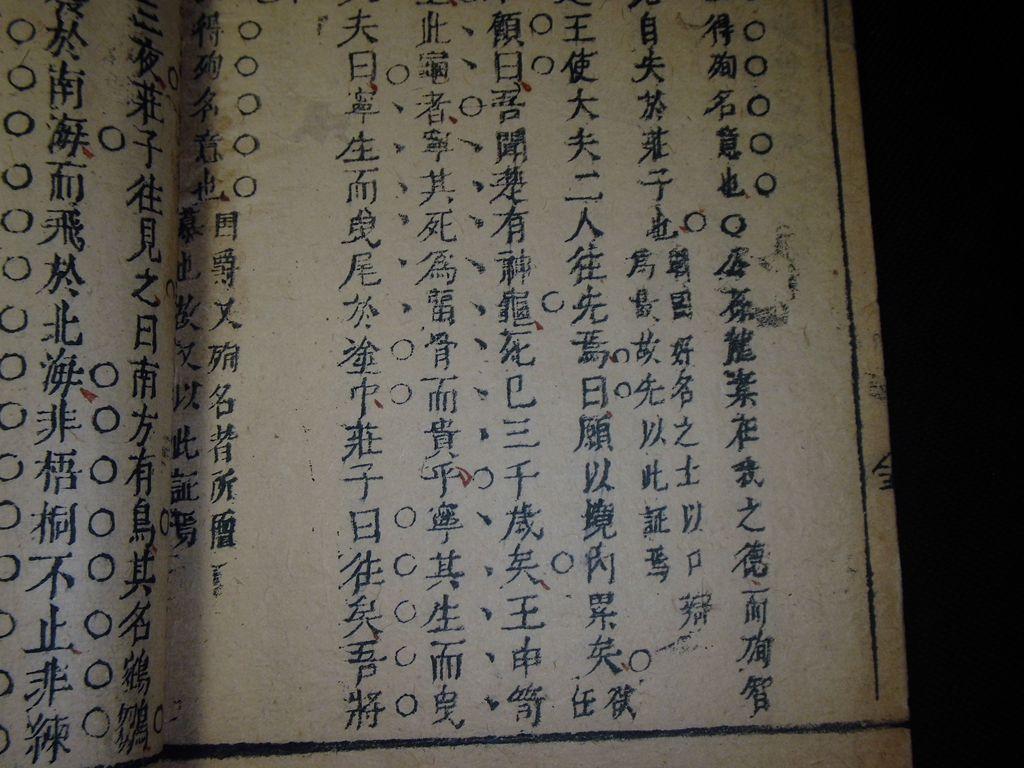 得殉名意也○公孫龍棄在我之德而殉智
自失於莊子也
戰國好名之士以口辯
為最故先以此証焉
王使大夫二人往先焉曰願以境內累矣
欲
任
顧曰吾聞楚有神龜死已三千歲矣王巾笥
此龜者寧其死為留骨而貴乎寧其生而曳
夫曰寧生而曳尾於塗中莊子曰往矣吾將
得殉名意也
爵又殉名者所
慕也故又以此証焉
夜莊子往見之曰南方有鳥其名鵷鶵
於南海而飛於北海非梧桐不止非練